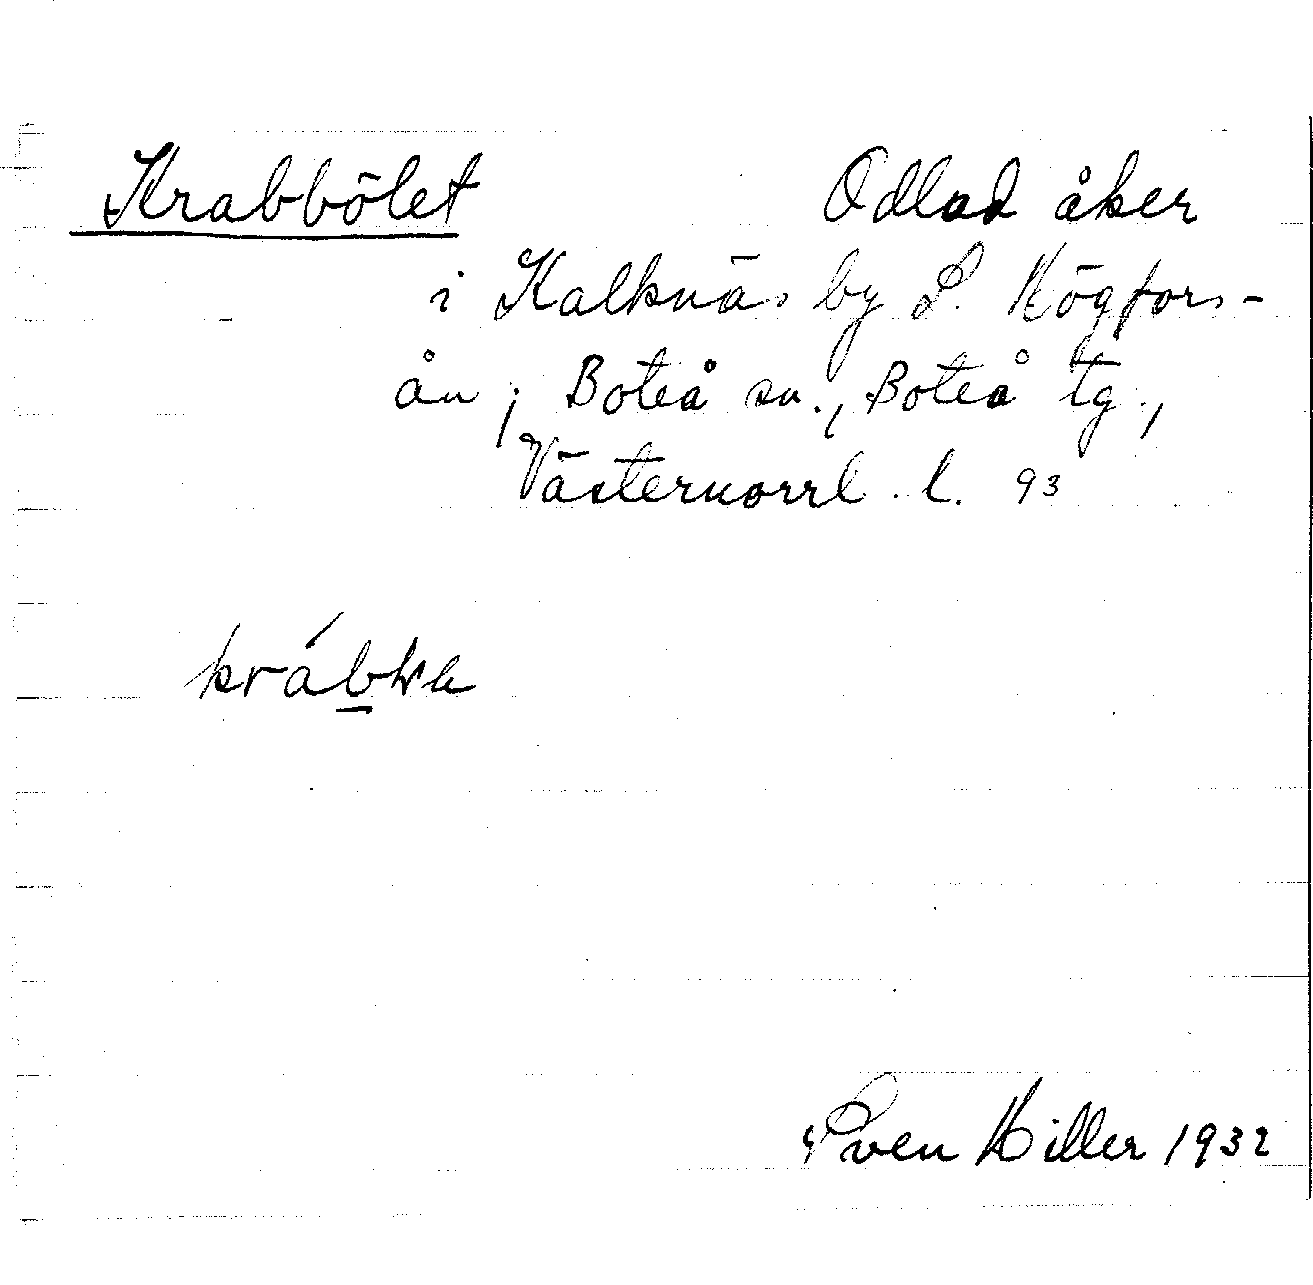 Krabbölet Odlad åker
i Kalknäs by S. Högfors-
ån; Boteå sn., Boteå tg.,
Västernorrl. l. 93
Sven Hiller 1932